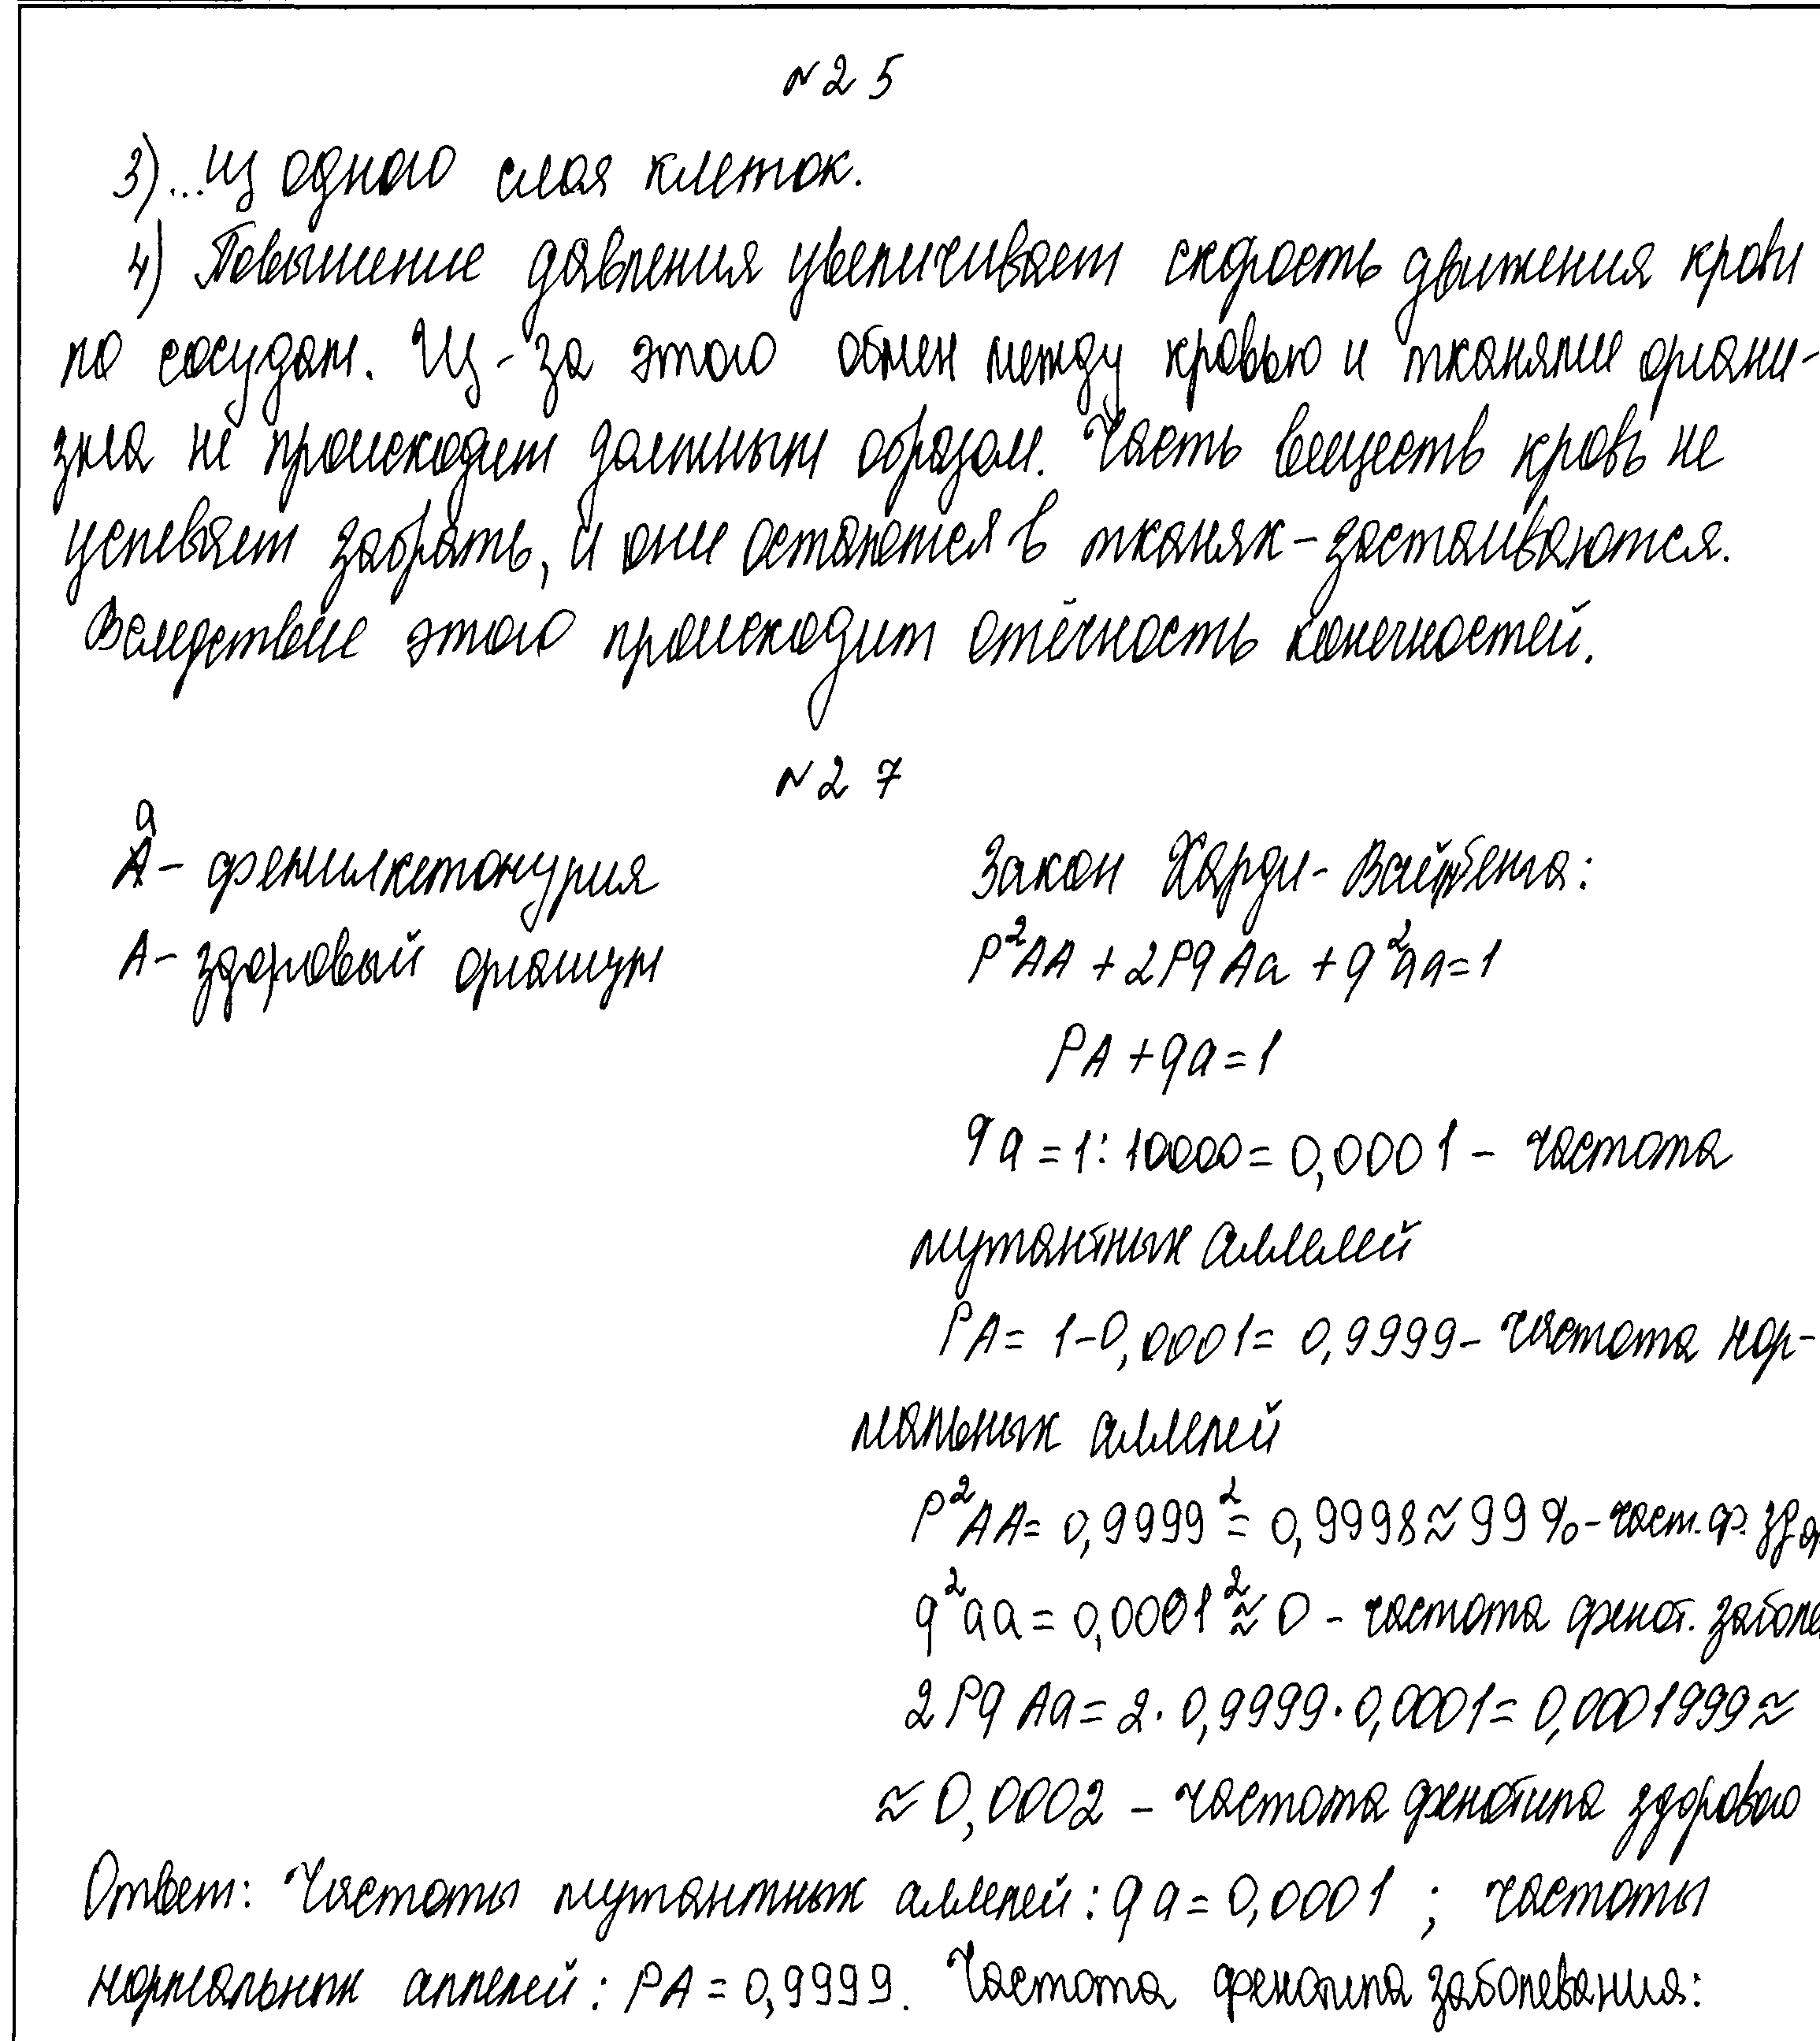 №25
3)...из одного слоя клеток.
4) Повышение давления увеличивает скорость движения крови
по сосудам. Из-за этого обмен между кровью и тканями органи-
зма не происходит должным образом. Часть веществ кровь не
успевает забрать, и они остаются в тканях - застаиваются.
Вследствие этого происходит отёчность конечностей.
№27
a
A - фенилкетонурия
A - здоровый организм
Закон Харди-Вайнберга:
p²AA + 2pq Aa + q²aa = 1
pA + qa = 1
qa = 1:10000 = 0,0001 - частота
мутантных аллелей
pA = 1-0,0001 = 0,9999 - частота нор-
мальных аллелей
p²AA = 0,9999² = 0,9998 ≈ 99% - част. ф. здор
q²aa = 0,0001² ≈ 0 - частота фенот. заболе
2pq Aa = 2·0,9999·0,0001 = 0,0001999 ≈
≈ 0,0002 - частота фенотипа здорового
Ответ: Частоты мутантных аллелей: qa = 0,0001 ; частоты
нормальных аллелей: pA = 0,9999. Частота фенотипа заболевания: